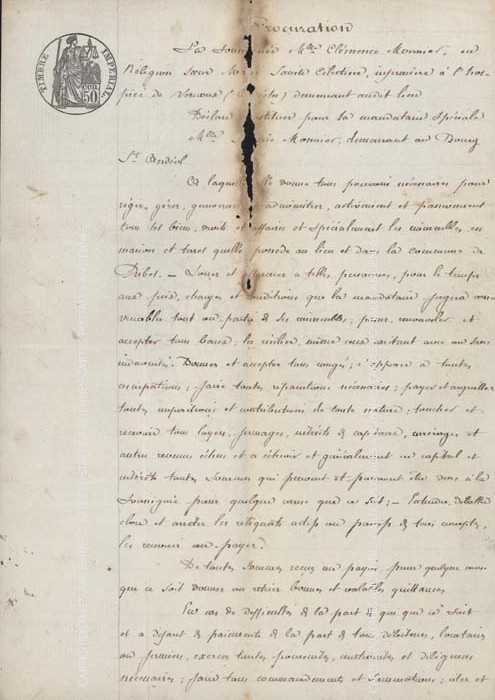 TIMBRE IMPERIAL
50 CEN.
Procuration
La Mlle Clémence Monnier, en
Religion Sœur Sainte Célestine, infirmière à l'hos-
pice de demeurant audit lieu
Déclare constituer pour sa mandataire Spéciale
Mlle Monnier, demeurant au Bourg
St. Andéol
A laquelle elle donne tous pouvoirs nécessaires pour
régir, gérer, administrer, activement et passivement
tous ses biens, droits et affaires et spécialement les immeubles, en
maison et terres qu'elle possède au lieu et dans la commune de
Ribes. — Louer et affermer à telles personnes, pour le temps
aux prix, charges et conditions que la mandataire jugera con-
venables tout ou partie de ses immeubles; passer, renouveler et
accepter tous baux; les résilier, même ceux existant avec ou sans
indemnités. Donner et accepter tous congés; s'opposer à toutes
usurpations; faire toutes réparations nécessaires; payer et acquitter
toutes impositions et contributions de toute nature; toucher et
recevoir tous loyers, fermages, intérêts de capitaux, arrérages et
autres revenus échus et à échoir et généralement en capital et
intérêts toutes sommes qui peuvent et pourront être dues à la
Soussignée pour quelque cause que ce soit; — Entendre, débattre
clore et arrêter les reliquats actifs ou passifs de tous comptes,
les recevoir ou payer.
De toutes sommes reçues ou payées pour quelque cause
que ce soit donner ou retirer bonnes et valables quittances.
En cas de difficultés de la part de qui que ce soit
et à défaut de paiements de la part de tous débiteurs, locataires
ou fermiers, exercer toutes poursuites, contraintes et diligences
nécessaires; faire tous commandements et sommations; citer et